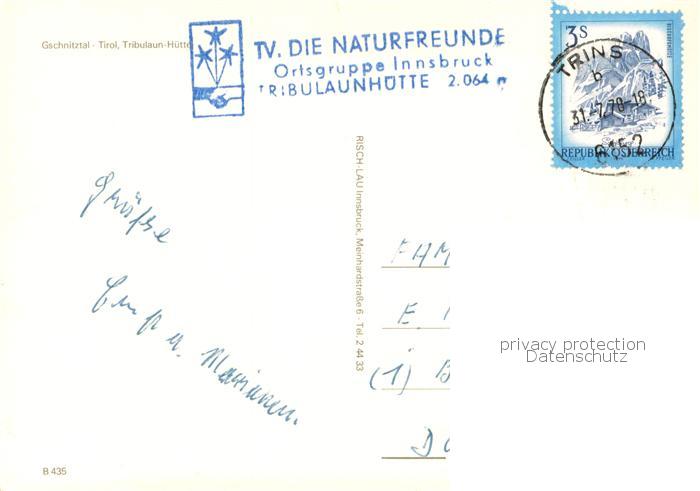 Gschnitztal - Tirol, Tribulaun-Hütte
TV. DIE NATURFREUNDE
Ortsgruppe Innsbruck
TRIBULAUNHÜTTE 2.064 m
3 S
TRINS
b
31.-7.78-18
6152
REPUBLIK ÖSTERREICH
RISCH-LAU Innsbruck, Meinhardstraße 6 · Tel. 2 44 33
Grüße
u. Marianen.
FHM
E.
(1) B
D
privacy protection
Datenschutz
B 435